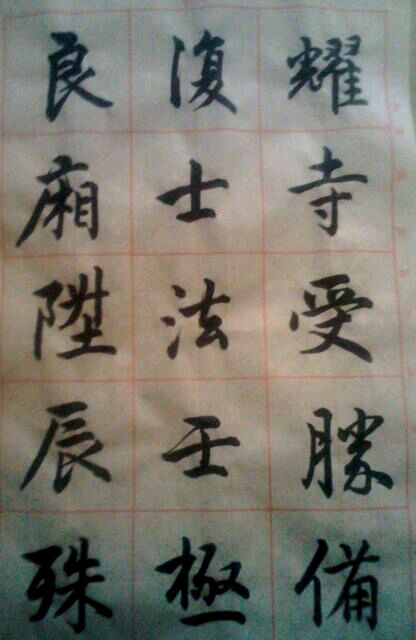 耀寺受勝備
復士法壬極
良廂陞辰殊